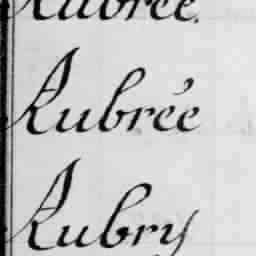 Aubrée.
Aubrée
Aubry